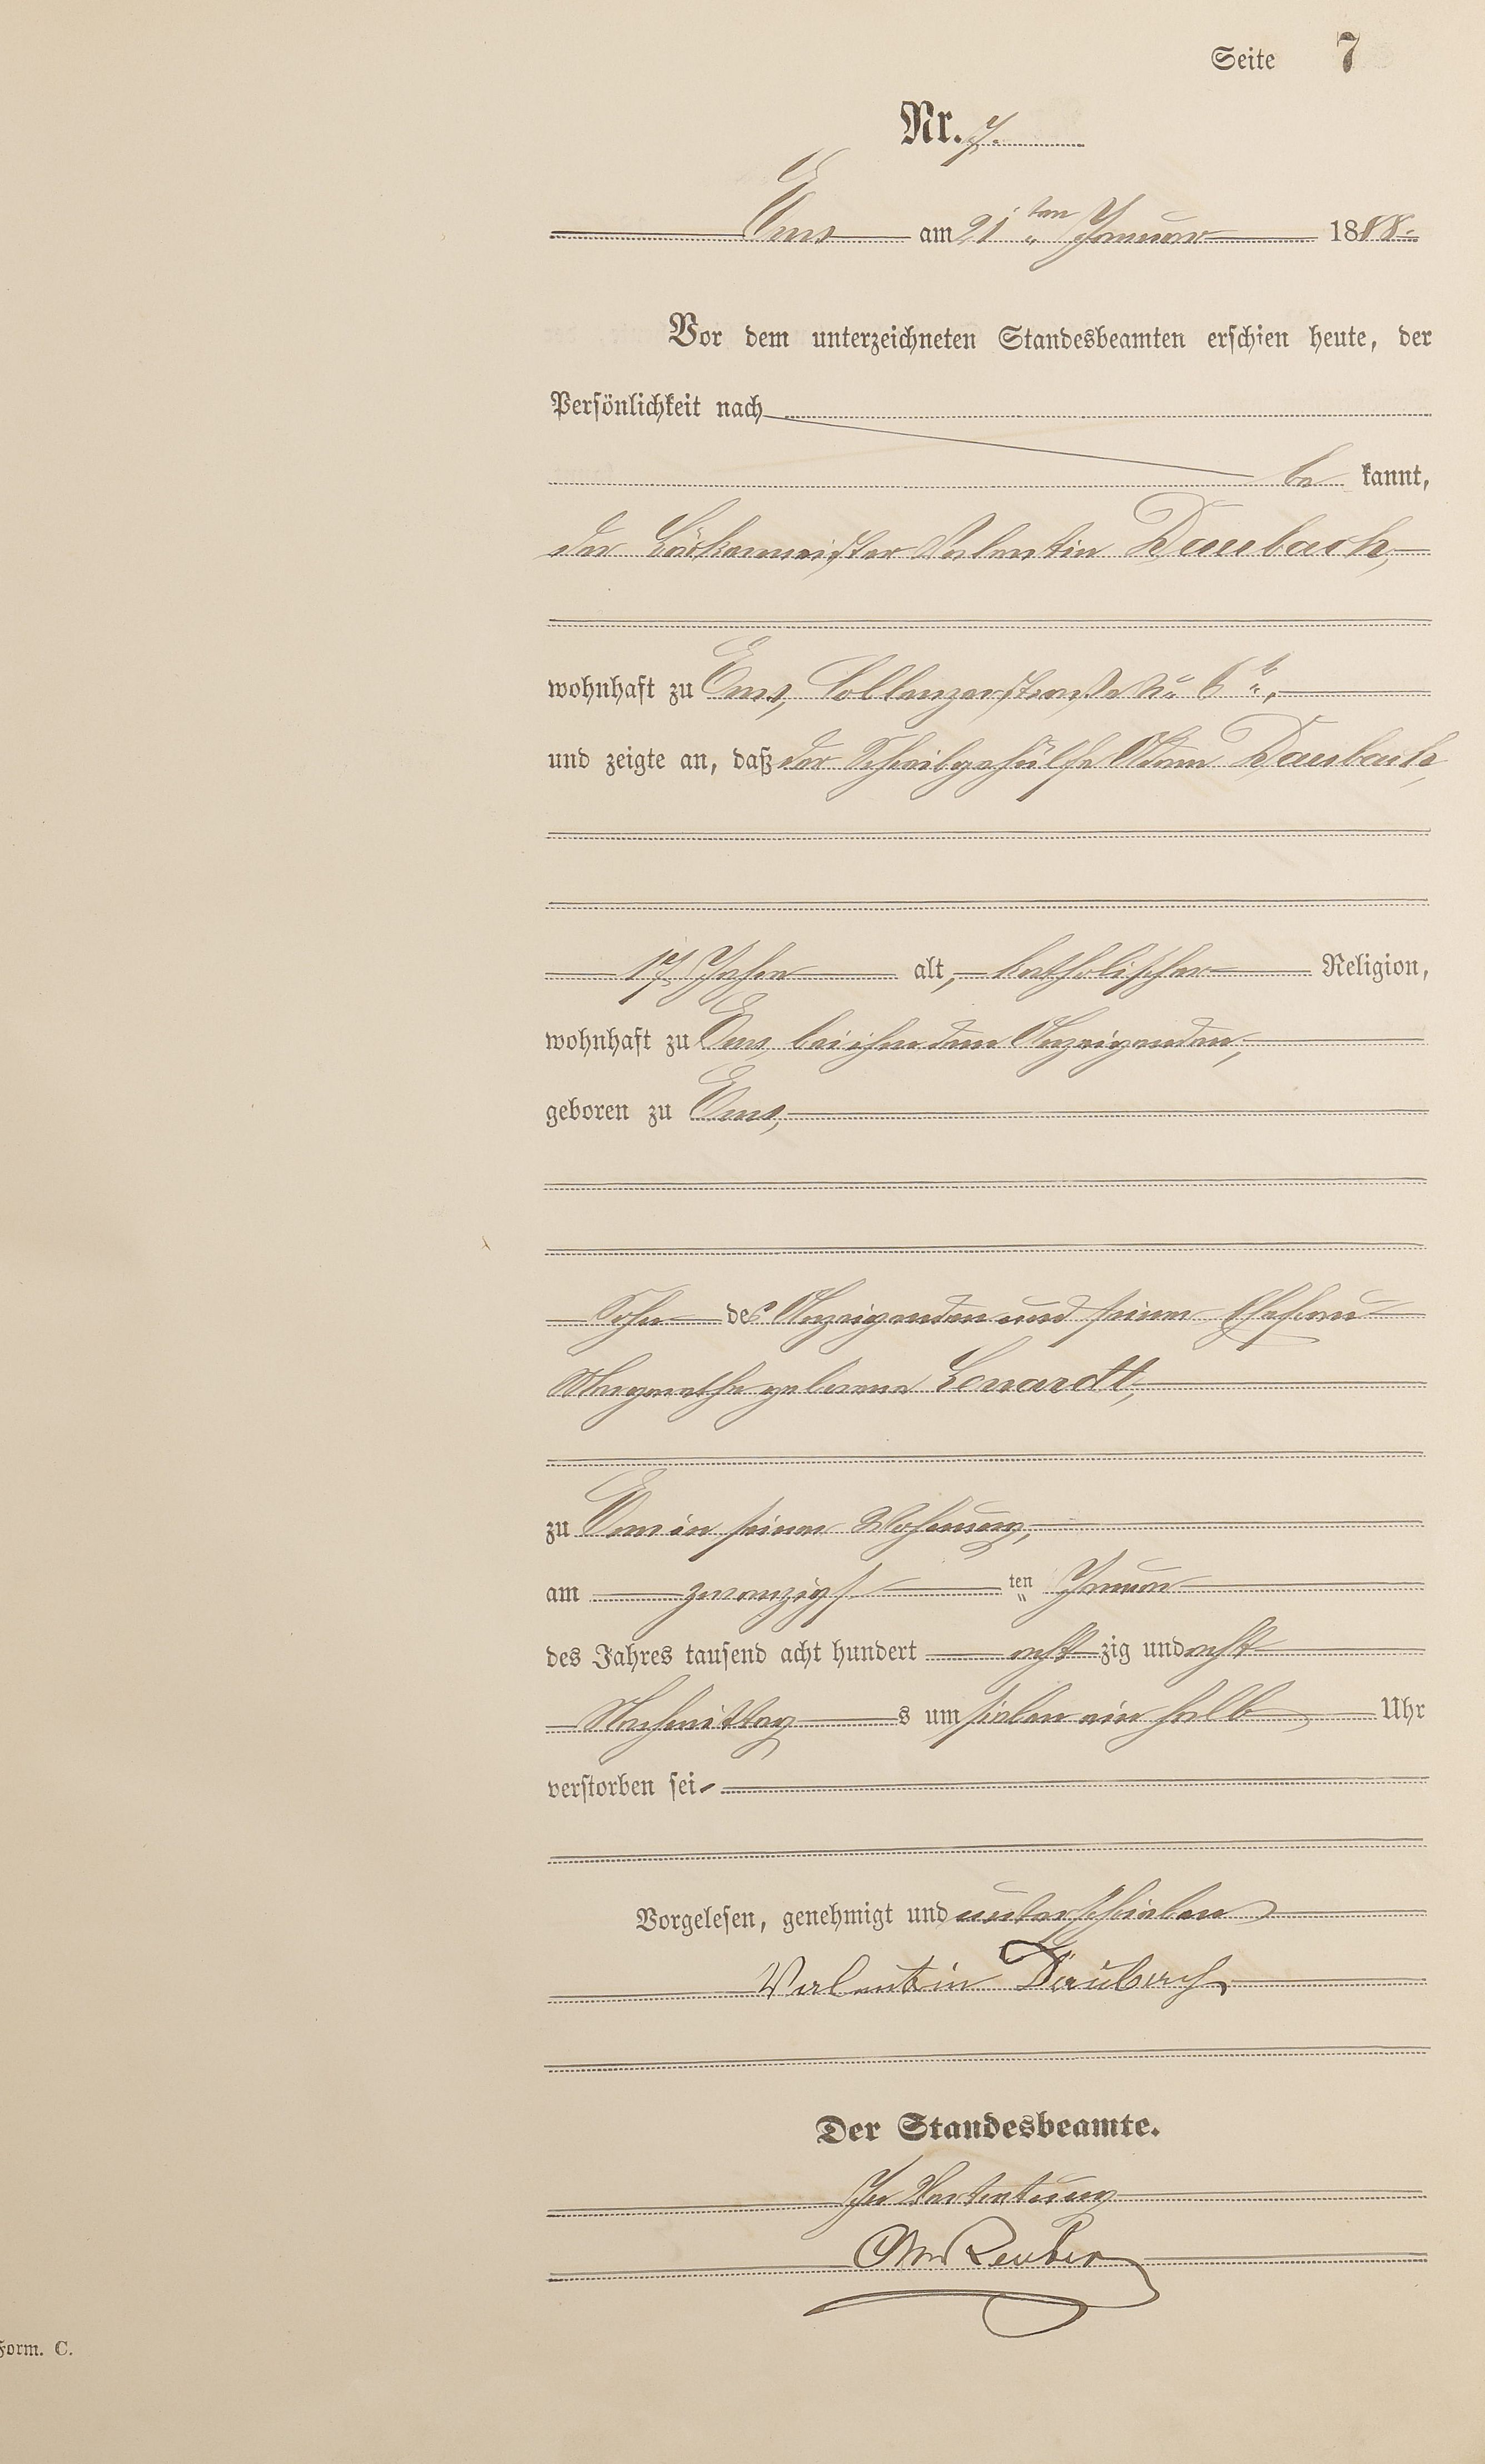 Seite 7
Nr. 7.
Ems am 21ten Januar 1888.
Vor dem unterzeichneten Standesbeamten erschien heute, der
Persönlichkeit nach
be kannt,
der Bäckermeister Valentin Daubach,
wohnhaft zu Ems, Coblenzerstraße No 6b,
und zeigte an, daß der Schreibgehülfe Adam Daubach,
17 Jahre alt, katholischer Religion,
wohnhaft zu Ems bei ihm dem Anzeigenden,
geboren zu Ems,
Sohn des Anzeigenden und seiner Ehefrau
Margarethe geborene Lenardt,
zu Ems in seiner Wohnung,
am zwanzigsten Januar
des Jahres tausend acht hundert acht zig und acht
Nachmittags um sieben ein halb Uhr
verstorben sei
Vorgelesen, genehmigt und unterschrieben
Valentin Daubach
Der Standesbeamte.
In Vertretung
Reuter
Form. C.